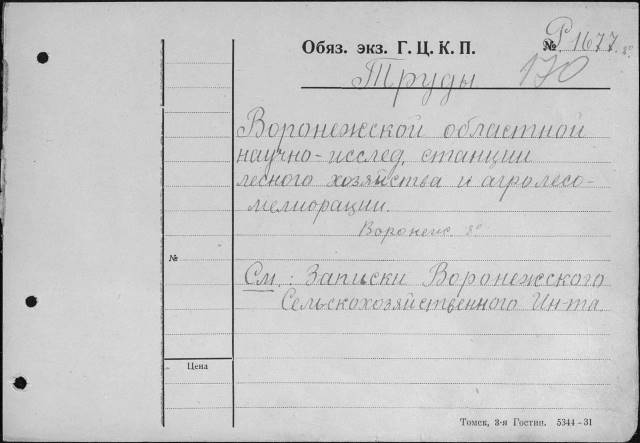 Обяз. экз. Г. Ц. К. П. № Р 1677. 8º
Труды 170
Воронежской областной
научно-исслед. станции
лесного хозяйства и агролесо-
мелиорации.
Воронеж. 8º
№
См.: Записки Воронежского
Сельскохозяйственного Ин-та
Цена
Томск, 3-я Гостип. 5344–31